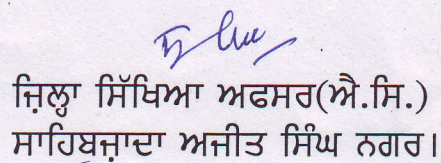 ਜ਼ਿਲ੍ਹਾ ਸਿੱਖਿਆ ਅਫਸਰ(ਐ.ਸਿ.)
ਸਾਹਿਬਜ਼ਾਦਾ ਅਜੀਤ ਸਿੰਘ ਨਗਰ।